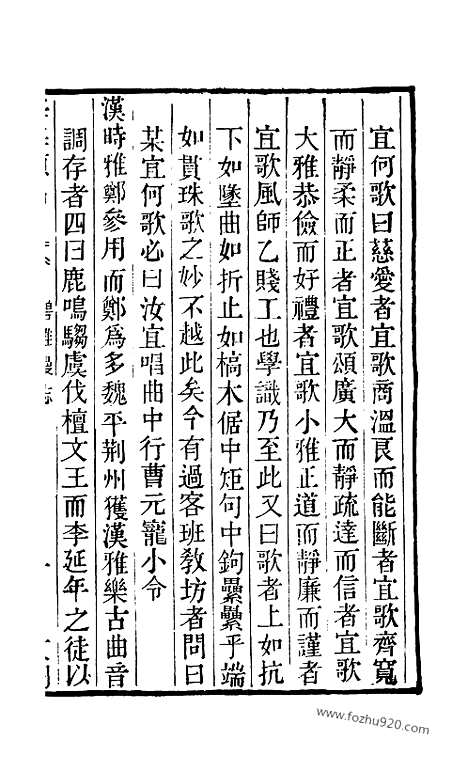 宜何歌曰慈愛者宜歌商溫良而能斷者宜歌齊寬
而靜柔而正者宜歌頌廣大而靜疏達而信者宜歌
大雅恭儉而好禮者宜歌小雅正道而靜廉而謹者
宜歌風師乙賤工也學識乃至此又曰歌者上如抗
下如墜曲如折止如槁木倨中矩句中鉤纍纍乎端
如貫珠歌之妙不越此矣今有過客班教坊者問曰
某宜何歌必曰汝宜唱曲中行曹元寵小令
漢時雅鄭參用而鄭爲多魏平荆州獲漢雅樂古曲音
調存者四曰鹿鳴騶虞伐檀文王而李延年之徒以
www.fozhu920.com